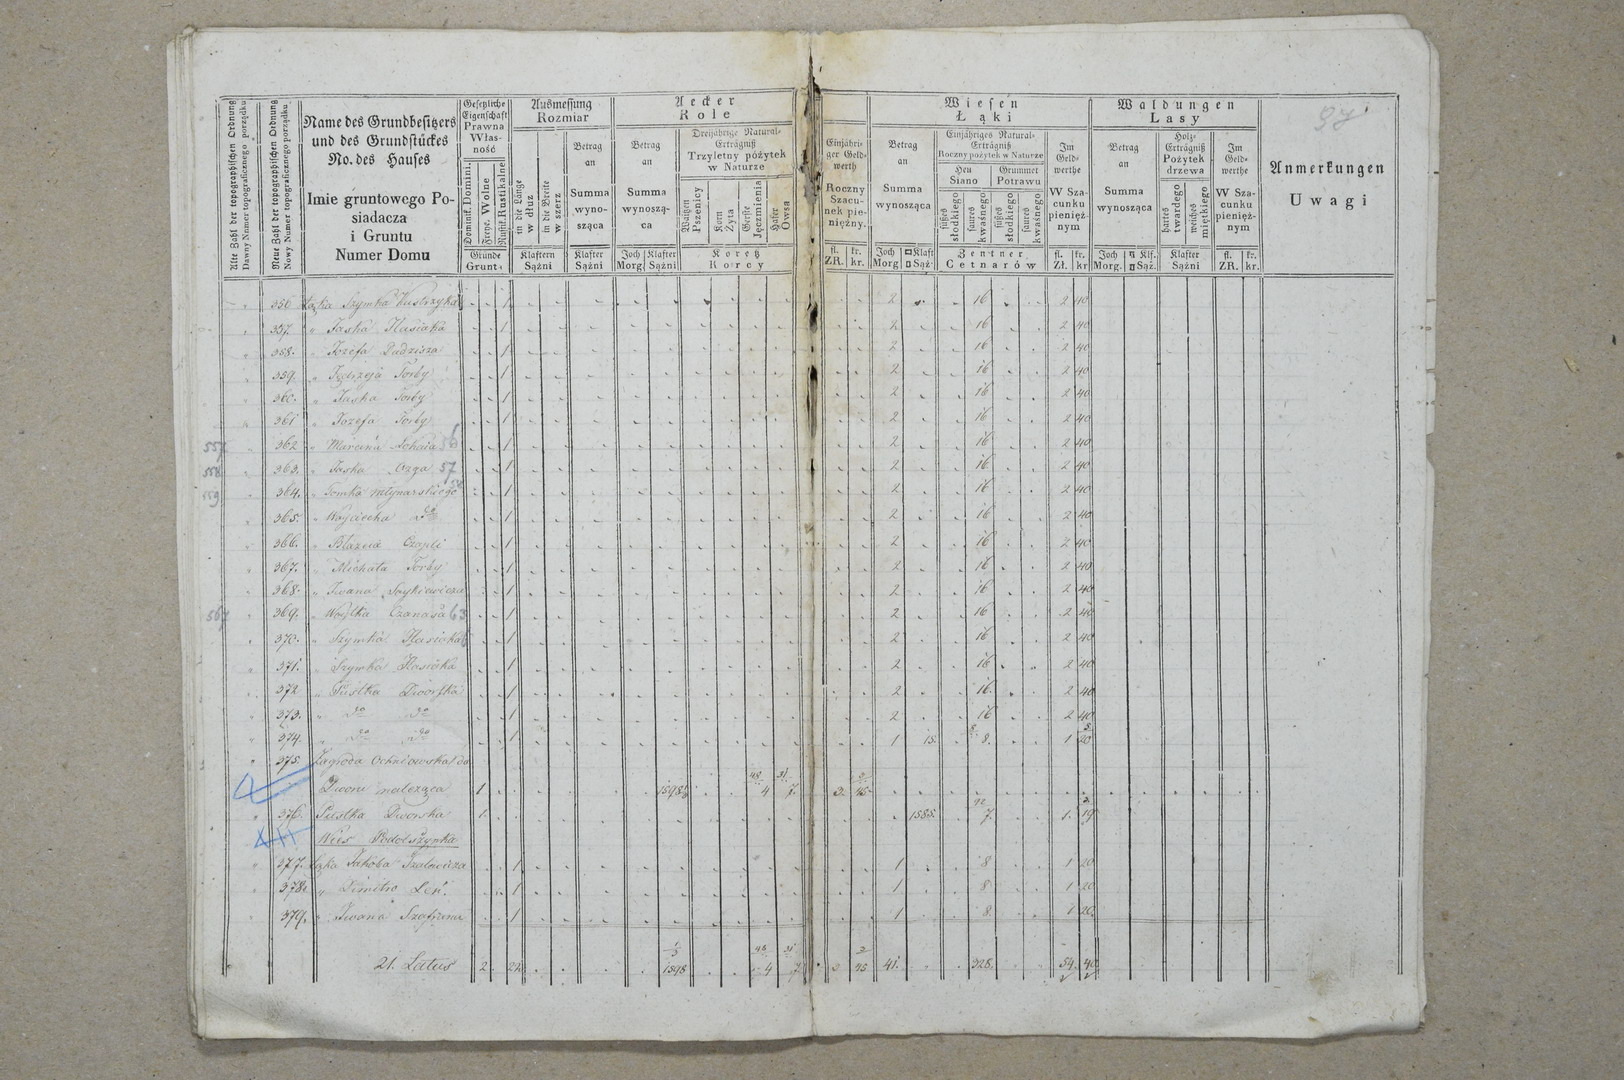 97
Alte Zahl der topographischen Ordnung
Dawny Numer topograficznego porządku
Neue Zahl der topographischen Ordnung
Nowy Numer topograficznego porządku
Name des Grundbesitzers
und des Grundstückes
No. des Hauses
Imie gruntowego Po-
siadacza
i Gruntu
Numer Domu
Gesetzliche
Eigenschaft
Prawna
Włas-
ność
Gründe
Grunt
Ausmessung
Rozmiar
in die Länge
w dłuz
in die Breite
w szerz
Klaftern
Sążni
Betrag
an
Summa
wyno-
sząca
Klafter
Sążni
Aecker
Role
Betrag
an
Summa
wynoszą-
ca
Joch Klafter
Morg Sążni
Dreijährige Natural-
Erträgniß
Trzyletny pożytek
w Naturze
Waitzen
Pszenicy
Korn
Żyta
Gerste
Jęczmienia
Hafer
Owsa
Koretz
Korcy
Einjähri-
ger Geld-
werth
Roczny
Szacu-
nek pie-
niężny.
fl. kr.
ZR. kr.
Wiesen
Łąki
Betrag
an
Summa
wynosząca
Joch Klaft
Morg Sąż.
Einjähriges Natural-
Erträgniß
Roczny pożytek w Naturze
Heu
Siano
Grummet
Potrawu
süßes
słodkiego
saures
kwaśnego
süßes
słodkiego
saures
kwaśnego
Zentner
Cetnarów
Im
Geld-
werthe
W Sza-
cunku
pienięż-
nym
fl. kr.
Zł. kr
Waldungen
Lasy
Betrag
an
Summa
wynosząca
Joch Klf.
Morg. Sąż.
Holz-
Erträgniß
Pożytek
drzewa
hartes
twardego
weiches
miętkiego
Klafter
Sążni
Im
Geld-
werthe
W Sza-
cunku
pienięż-
nym
fl. kr.
ZR. kr.
Anmerkungen
Uwagi
356 Łąka Szymka 1 2 16 2 40
357. " Jaśka Hasiaka 1 2 16 2 40
358. " Józefa 1 2 16 2 40
359. " Jędrzeja Torby 1 2 16 2 40
360. " Jaśka Torby 1 2 16 2 40
361 " Jozefa Torby 1 2 16 2 40
557 362 " Marcina 56 1 2 16 2 40
558 363. " Jaśka Ozga 57 1 2 16 2 40
559 364. " Tomka Młynarskiego 58 1 2 16 2 40
365. " Woyciecha do 1 2 16 2 40
366. " Błażeia Czapli 1 2 16 2 40
367. " Michała Torby 1 2 16 2 40
368. " Iwana 1 2 16 2 40
369. " Woytka 63 1 2 16 2 40
370. " Szymka Hasiaka 1 2 16 2 40
371. " Szymka Hasiaka 1 2 16 2 40
372 " Pustka Dworska 1 2 16 2 40
373. " do do 1 2 16 2 40
374. " do do 1 1 15 8. 1 20
375. Zagroda Ochniowska do
Dworu należąca 1 1598 4 7 3 45
376. Pustka Dworska 1. 1585 7. 1. 19
Wieś
377. Łąka Jakóba 1 1 8 1 20
378. " Dimitro Leń. 1 1 8 1 20
379. " Iwana 1 1 8. 1 20.
21. Latus 2. 22 1598 4 7 3 45 41. 328. 54 40